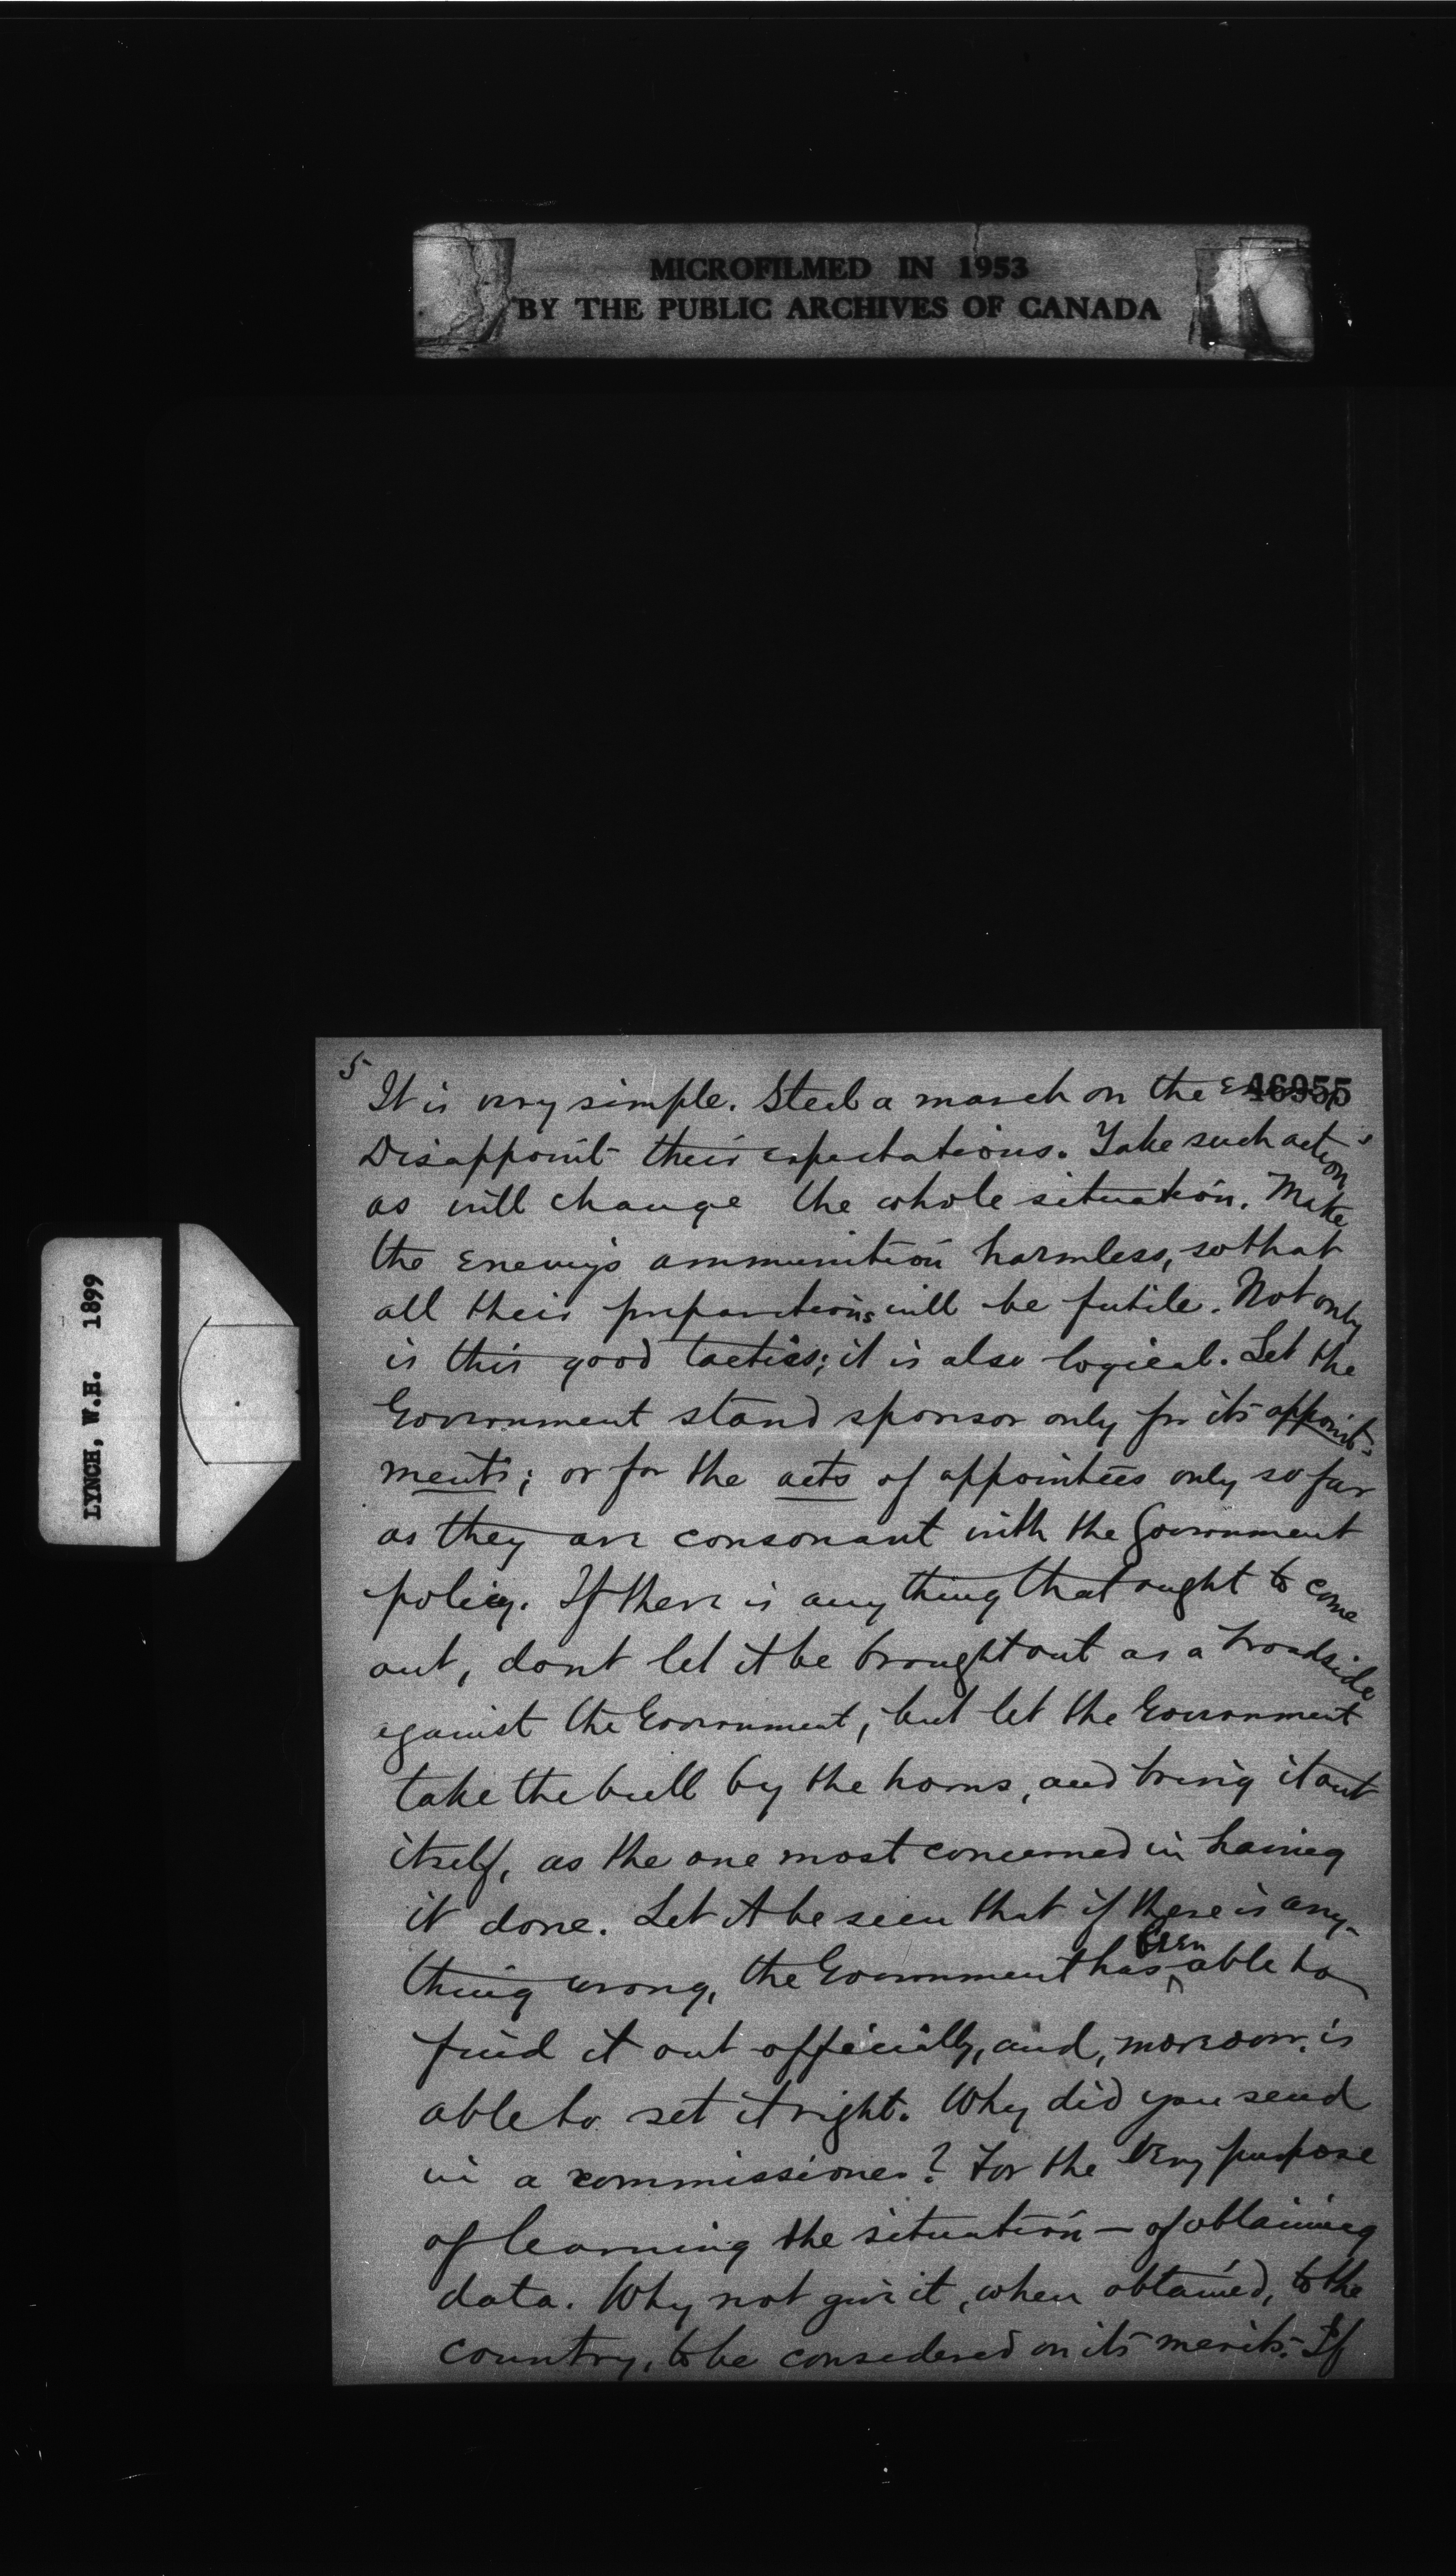 MICROFILMED IN 1953
BY THE PUBLIC ARCHIVES OF CANADA
LYNCH, W.H. 1899
5
46955
It is very simple. Steal a march on the
Disappoint their expectations. Take such action
as will change the whole situation. Make
the enemy's ammunition harmless, so that
all their preparations will be futile. Not only
is this good tactics; it is also logical. Let the
Government stand sponsor only for its appoint-
ments; or for the acts of appointees only so far
as they are consonant with the Government
policy. If there is any thing that ought to come
out, dont let it be brought out as a broadside
against the Government, but let the Government
take the bull by the horns, and bring it out
itself, as the one most concerned in having
it done. Let it be seen that if there is any-
thing wrong, the Government has been able to
find it out officially, and, moreover, is
able to set it right. Why did you send
in a commissioner? For the very purpose
of learning the situation — of obtaining
data. Why not give it, when obtained, to the
country, to be considered on its merits. If